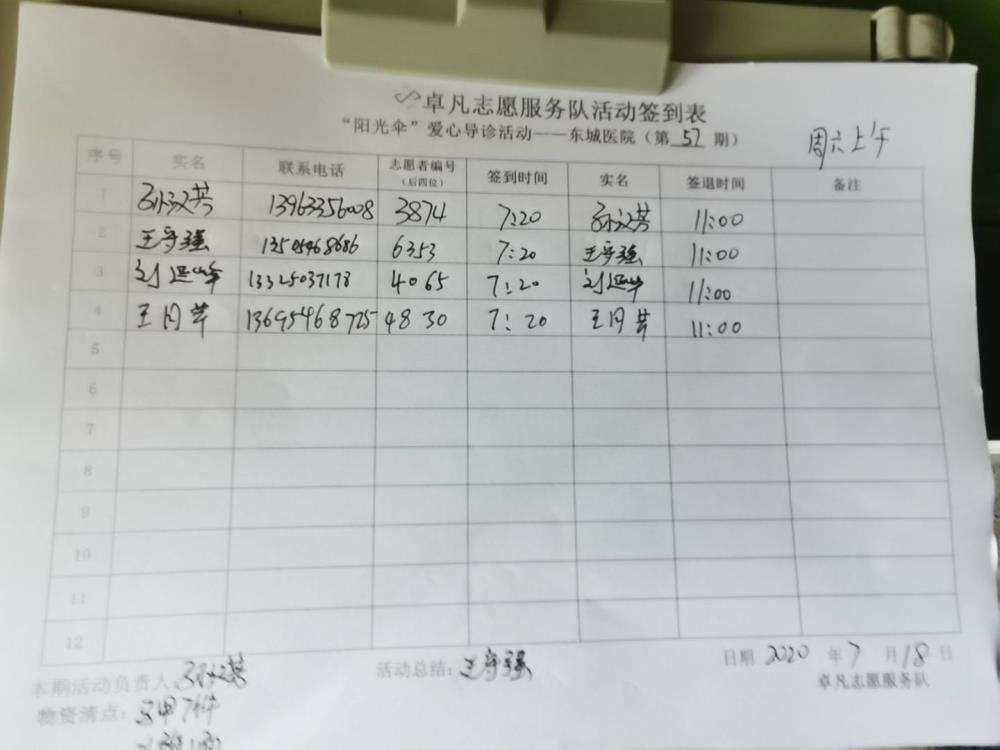 卓凡志愿服务队活动签到表
“阳光伞”爱心导诊活动——东城医院（第 57 期）
周六上午
序号 实名 联系电话 志愿者编号（后四位） 签到时间 实名 签退时间 备注
1 孙汉芳 13963356008 3874 7:20 孙汉芳 11:00
2 王守强 13505468686 6353 7:20 王守强 11:00
3 刘 13325037178 4065 7:20 刘 11:00
4 王月芳 13695468725 4830 7:20 王月芳 11:00
5
6
7
8
9
10
11
12
本期活动负责人 孙汉芳 活动总结：王守强 日期 2020 年 7 月 18 日
卓凡志愿服务队
物资清点：马甲7件